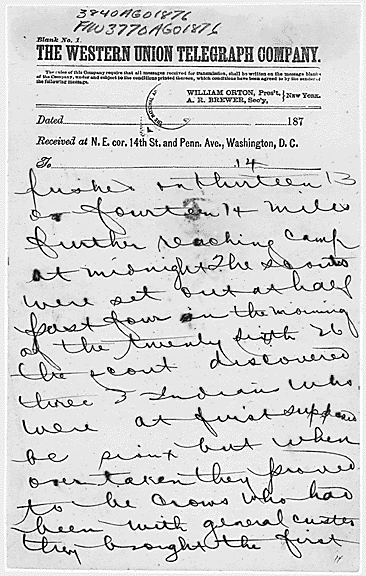 3840AGO1876
F/W3770AGO1876
Blank No. 1.
THE WESTERN UNION TELEGRAPH COMPANY.
The rules of this Company require that all messages received for transmission, shall be written on the message blanks
of the Company, under and subject to the conditions printed thereon, which conditions have been agreed to by the sender of
the following message.
WILLIAM ORTON, Pres't,
A. R. BREWER, Sec'y,
} New York.
Dated 187
Received at N. E. cor. 14th St. and Penn. Ave., Washington, D. C.
To 14
pushed on thirteen 13
or fourteen 14 miles
further reaching camp
at midnight The scouts
were set out at half
past four in the morning
of the twenty sixth 26
the scout discovered
three 3 Indians who
were at first supposed
be sioux but when
overtaken they proved
to be Crows who had
been with general custer
they brought the first
14